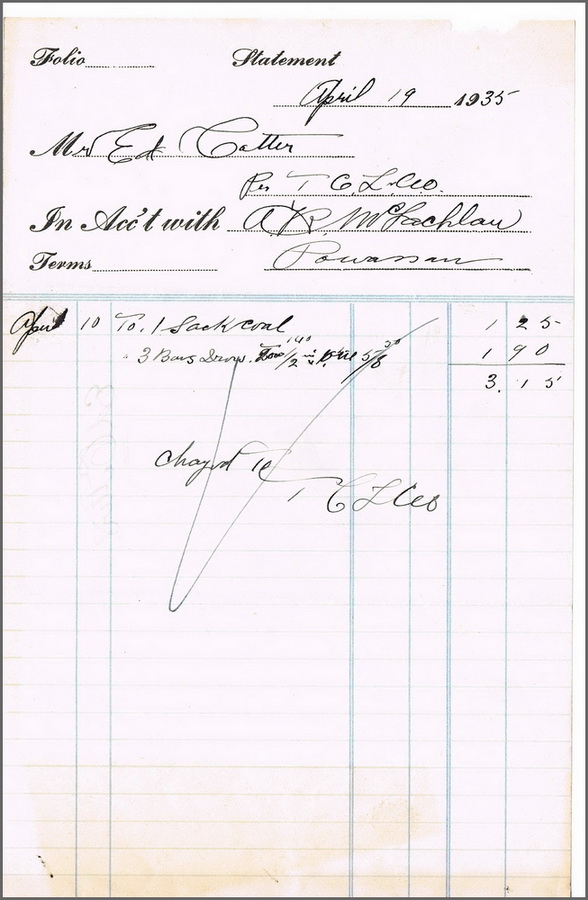 Folio Statement
April 19 1935
Mr Ed Catter
Per T C L Co.
In Acc't with A K McLachlan
Terms Powassan
April 10 To. 1 Sack coal 1 25
3 Bars 1 90
3. 15
Charged to
T C L Co